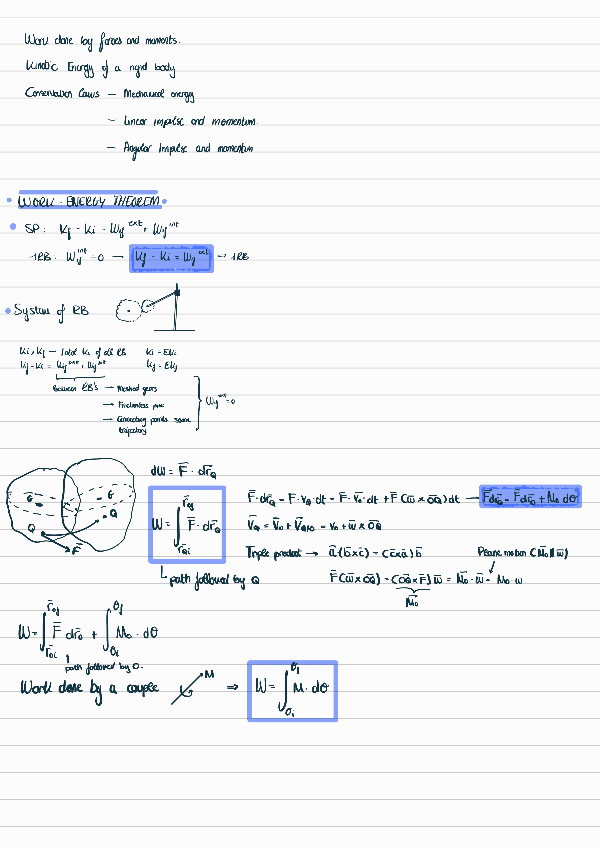 Work done by forces and moments.
Kinetic Energy of a rigid body
Conservation laws — Mechanical energy
— Linear impulse and momentum.
— Angular Impulse and momentum
• WORK - ENERGY THEOREM •
• SP: Kf - Ki = Wif^ext + Wif^int
1RB: Wif^int = 0 → Kf - Ki = Wif^ext → 1RB
• System of RB
Ki, Kf — Total Ki of all RB Ki = ΣKi
Kf - Ki = Wif^ext + Wif^int Kf = ΣKf
Between RB's → Meshed gears
→ Frictionless pin
→ Connecting points same trajectory
Wif^int = 0
dW = F̄ · dr̄Q
G G
Q Q
F̄
W = ∫ F̄ · dr̄Q
r̄Qf
r̄Qi
path followed by Q
F̄ · dr̄Q = F̄ · v̄Q · dt = F̄ · v̄o · dt + F̄ (ω̄ × OQ) dt → F̄dr̄Q = F̄dr̄o + Mo dθ
v̄Q = v̄o + v̄Q/o = v̄o + ω̄ × OQ
Triple product → ā(b̄×c̄) = (c̄×ā)b̄ Plane motion (Mo ∥ ω̄)
F̄(ω̄ × OQ) = (OQ × F̄) ω̄ = M̄o · ω̄ = Mo · ω
M̄o
W = ∫ F̄ dr̄o + ∫ Mo · dθ
r̄of θf
r̄oi θi
path followed by O.
Work done by a couple M ⇒ W = ∫ M · dθ
θf
θi